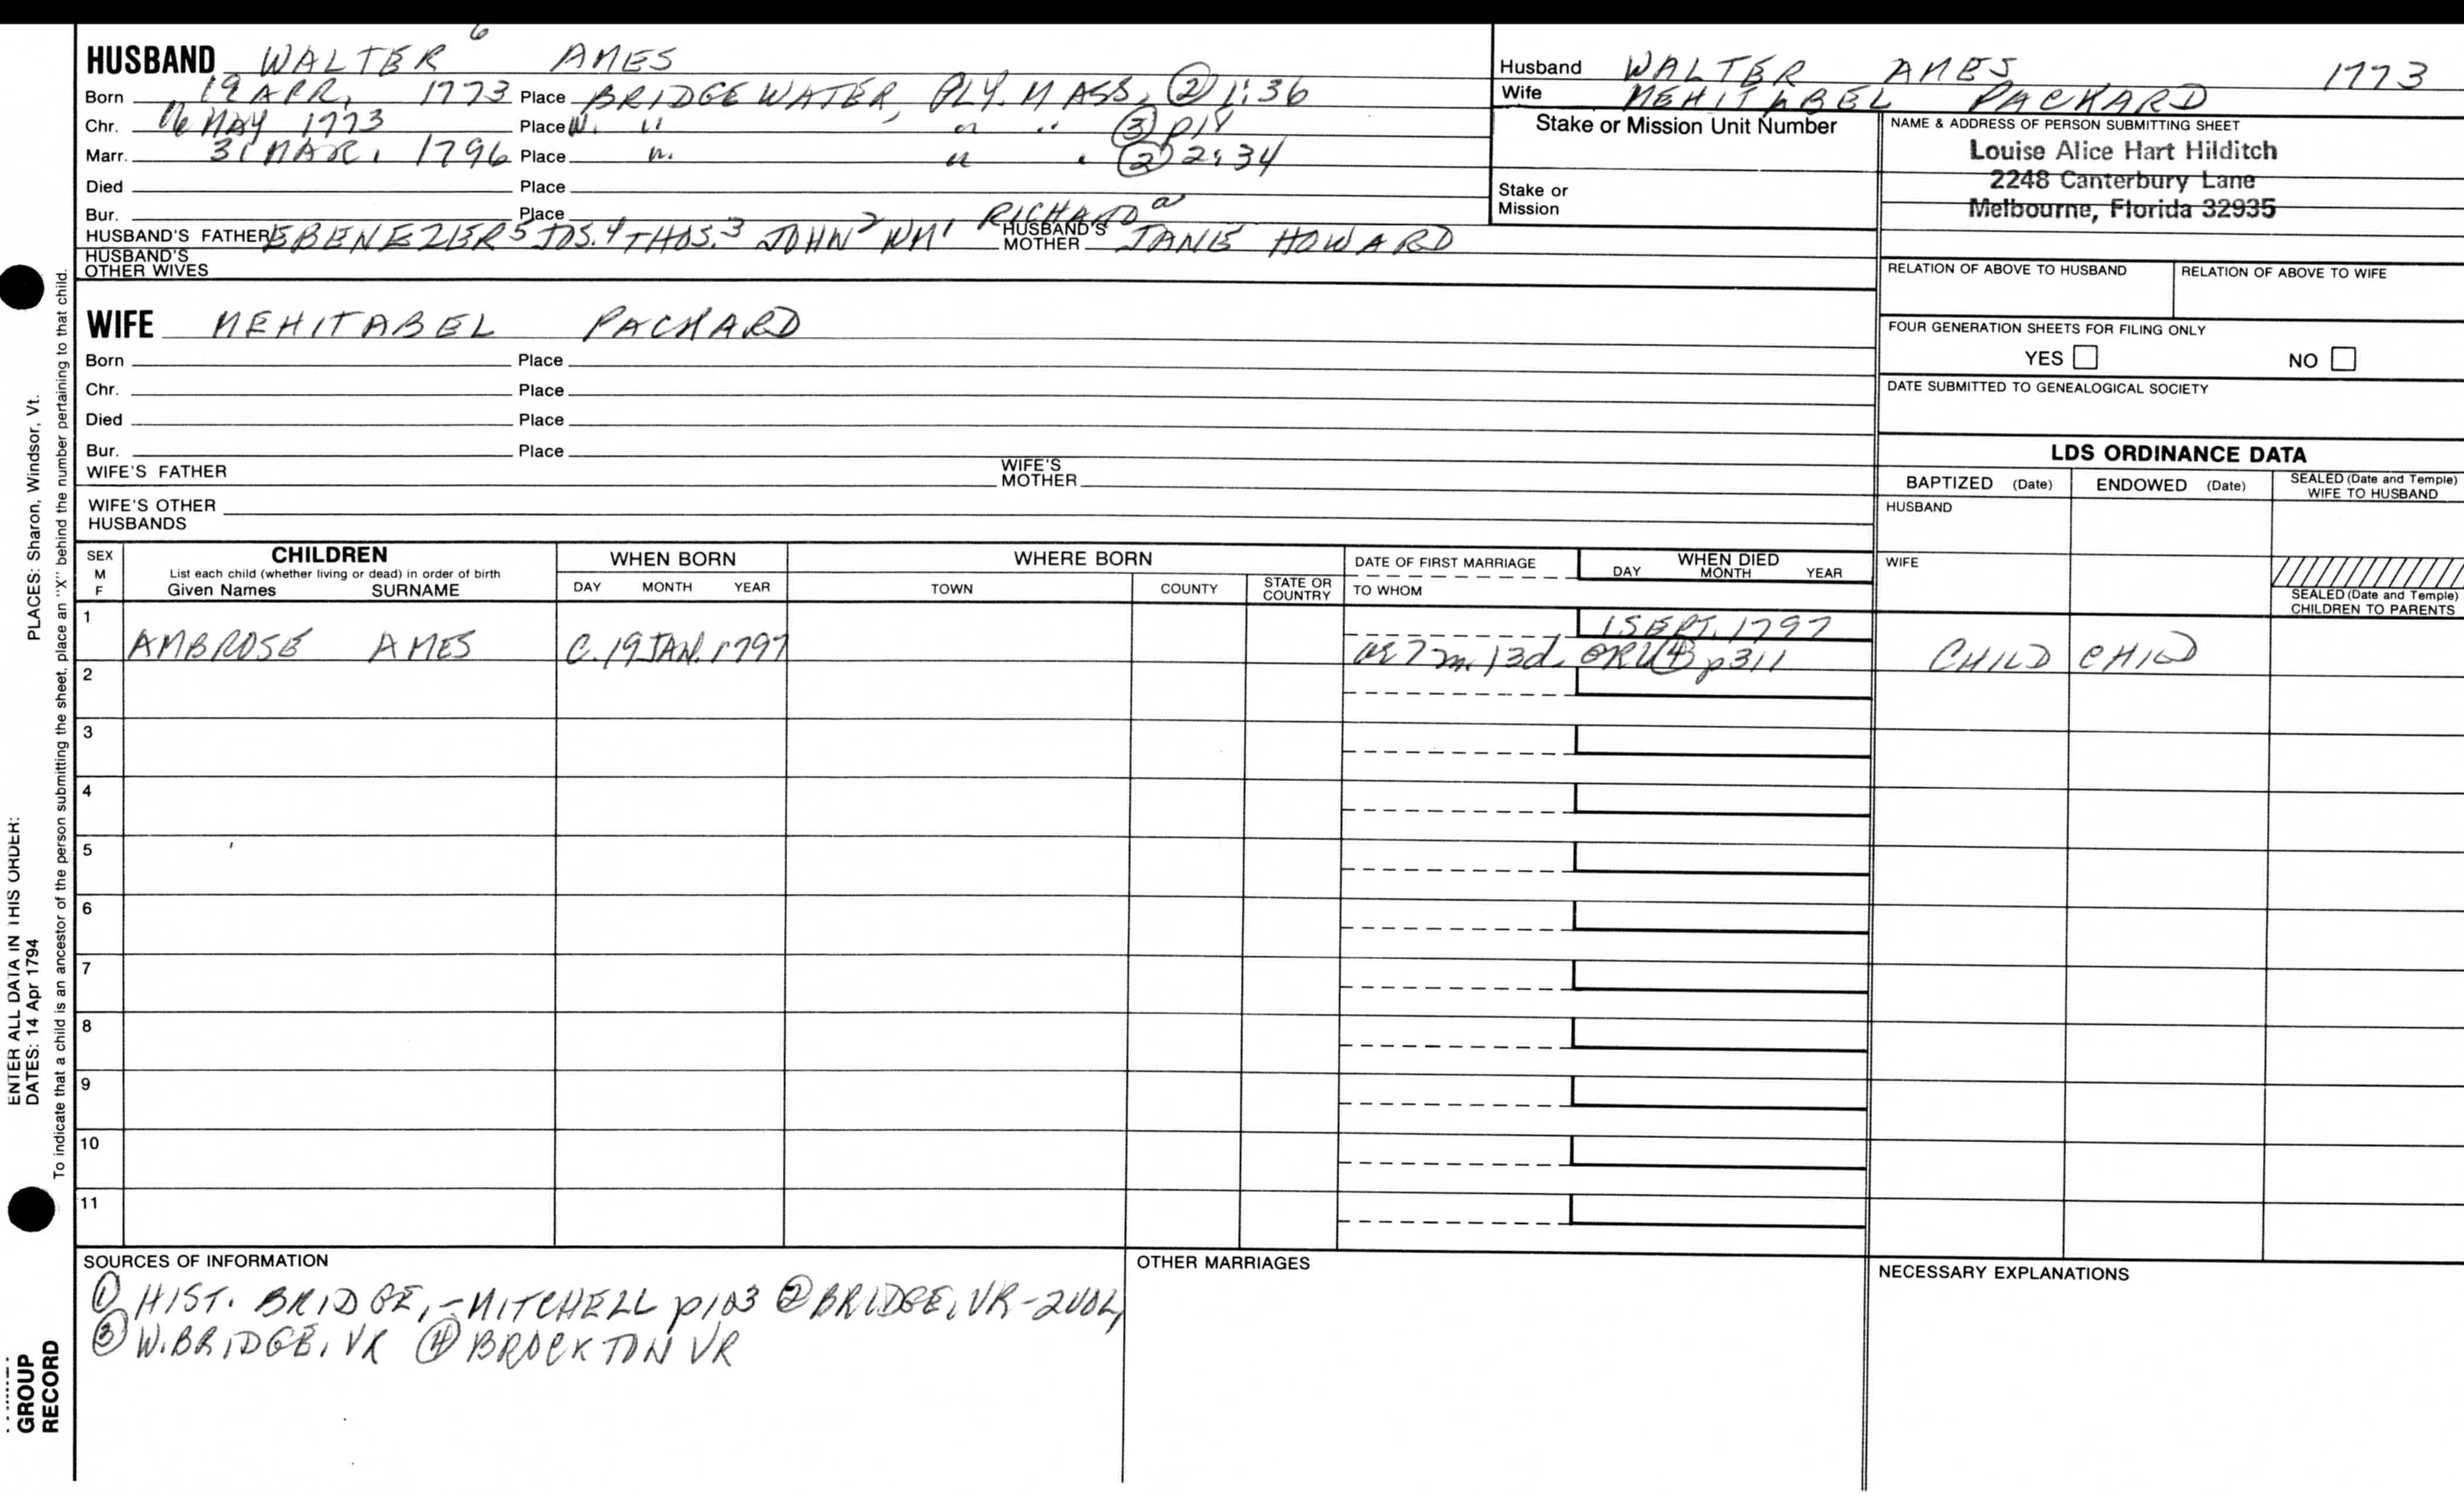 HUSBAND WALTER 6 AMES
Born 19 APR. 1773 Place BRIDGEWATER, PLY. MASS. ② 1:36
Chr. 16 MAY 1773 Place W. " " " ③ p14
Marr. 31 MAR. 1796 Place " " " ② 2:34
Died Place
Bur. Place
HUSBAND'S FATHER EBENEZER 5 JOS. 4 THOS. 3 JOHN 2 WM 1 RICHARD a HUSBAND'S MOTHER JANE HOWARD
HUSBAND'S OTHER WIVES
Husband WALTER AMES 1773
Wife MEHITABEL PACKARD
Stake or Mission Unit Number
Stake or Mission
NAME & ADDRESS OF PERSON SUBMITTING SHEET
Louise Alice Hart Hilditch
2248 Canterbury Lane
Melbourne, Florida 32935
RELATION OF ABOVE TO HUSBAND RELATION OF ABOVE TO WIFE
FOUR GENERATION SHEETS FOR FILING ONLY
YES NO
DATE SUBMITTED TO GENEALOGICAL SOCIETY
WIFE MEHITABEL PACKARD
Born Place
Chr. Place
Died Place
Bur. Place
WIFE'S FATHER WIFE'S MOTHER
WIFE'S OTHER HUSBANDS
LDS ORDINANCE DATA
BAPTIZED (Date) ENDOWED (Date) SEALED (Date and Temple) WIFE TO HUSBAND
HUSBAND
WIFE
SEALED (Date and Temple) CHILDREN TO PARENTS
SEX M F CHILDREN WHEN BORN WHERE BORN DATE OF FIRST MARRIAGE WHEN DIED
List each child (whether living or dead) in order of birth
Given Names SURNAME DAY MONTH YEAR TOWN COUNTY STATE OR COUNTRY TO WHOM DAY MONTH YEAR
1 1 SEPT. 1797
AMBROSE AMES C. 19 JAN. 1797 ae 7m. 13d. GR4 ④ p311 CHILD CHILD
2
3
4
5
6
7
8
9
10
11
SOURCES OF INFORMATION
① HIST. BRIDGE, - MITCHELL p103 ② BRIDGE, VR - 2 VOL,
③ W. BRIDGE, VR ④ BROCKTON VR
OTHER MARRIAGES
NECESSARY EXPLANATIONS
PLACES: Sharon, Windsor, Vt.
ENTER ALL DATA IN THIS ORDER:
DATES: 14 Apr 1794
To indicate that a child is an ancestor of the person submitting the sheet, place an "X" behind the number pertaining to that child.
GROUP
RECORD